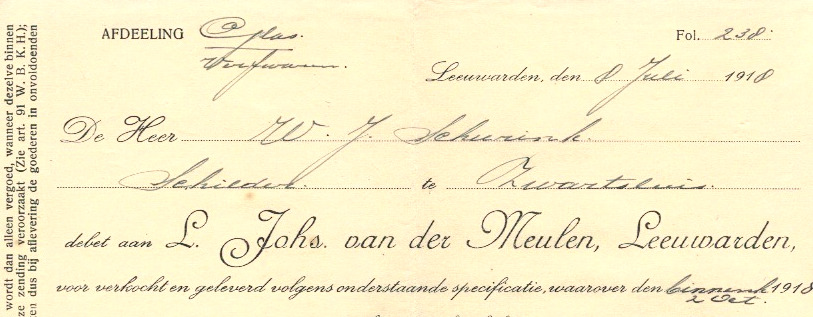 AFDEELING Glas.
Verfwaren.
Fol. 238.
Leeuwarden, den 8 Juli 1918
De Heer W. J. Schurink.
Schilder te Zwartsluis.
debet aan L. Johs. van der Meulen, Leeuwarden,
voor verkocht en geleverd volgens onderstaande specificatie, waarover den 1918
2 Oct.
wordt dan alleen vergoed, wanneer dezelve binnen
ze zending veroorzaakt (Zie art. 91 W. B. K. H.);
en dus bij aflevering de goederen in onvoldoenden